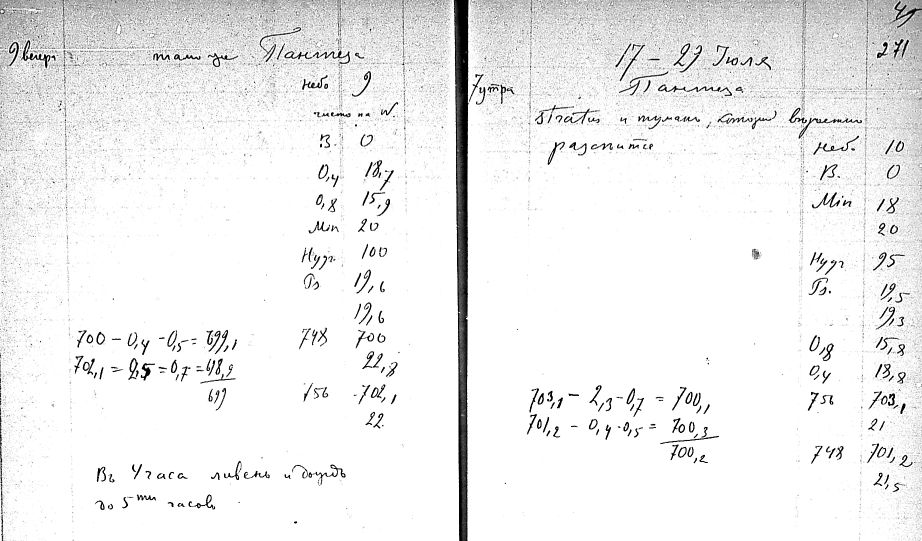 9 вечера
тамъ же Пантеза
небо 9
чисто на W.
В. 0
0,4 18,7
0,8 15,9
Min 20
Hydr 100
Ps 19,6
19,6
700 - 0,4 - 0,5 = 699,1 748 700
22,8
702,1 - 2,5 - 0,7 = 698,9
699 756 702,1
22
Въ 4 часа ливень и дождь
до 5ти часовъ
49
271
17 - 29 Июля
7 утра Пантеза
Stratus и туманъ, который
небо 10
В. 0
Min 18
20
Hydr 95
Ps. 19,5
19,3
0,8 15,8
0,4 18,8
703,1 - 2,3 - 0,7 = 700,1 756 703,1
21
701,2 - 0,4 - 0,5 = 700,3
700,2 748 701,2
21,5